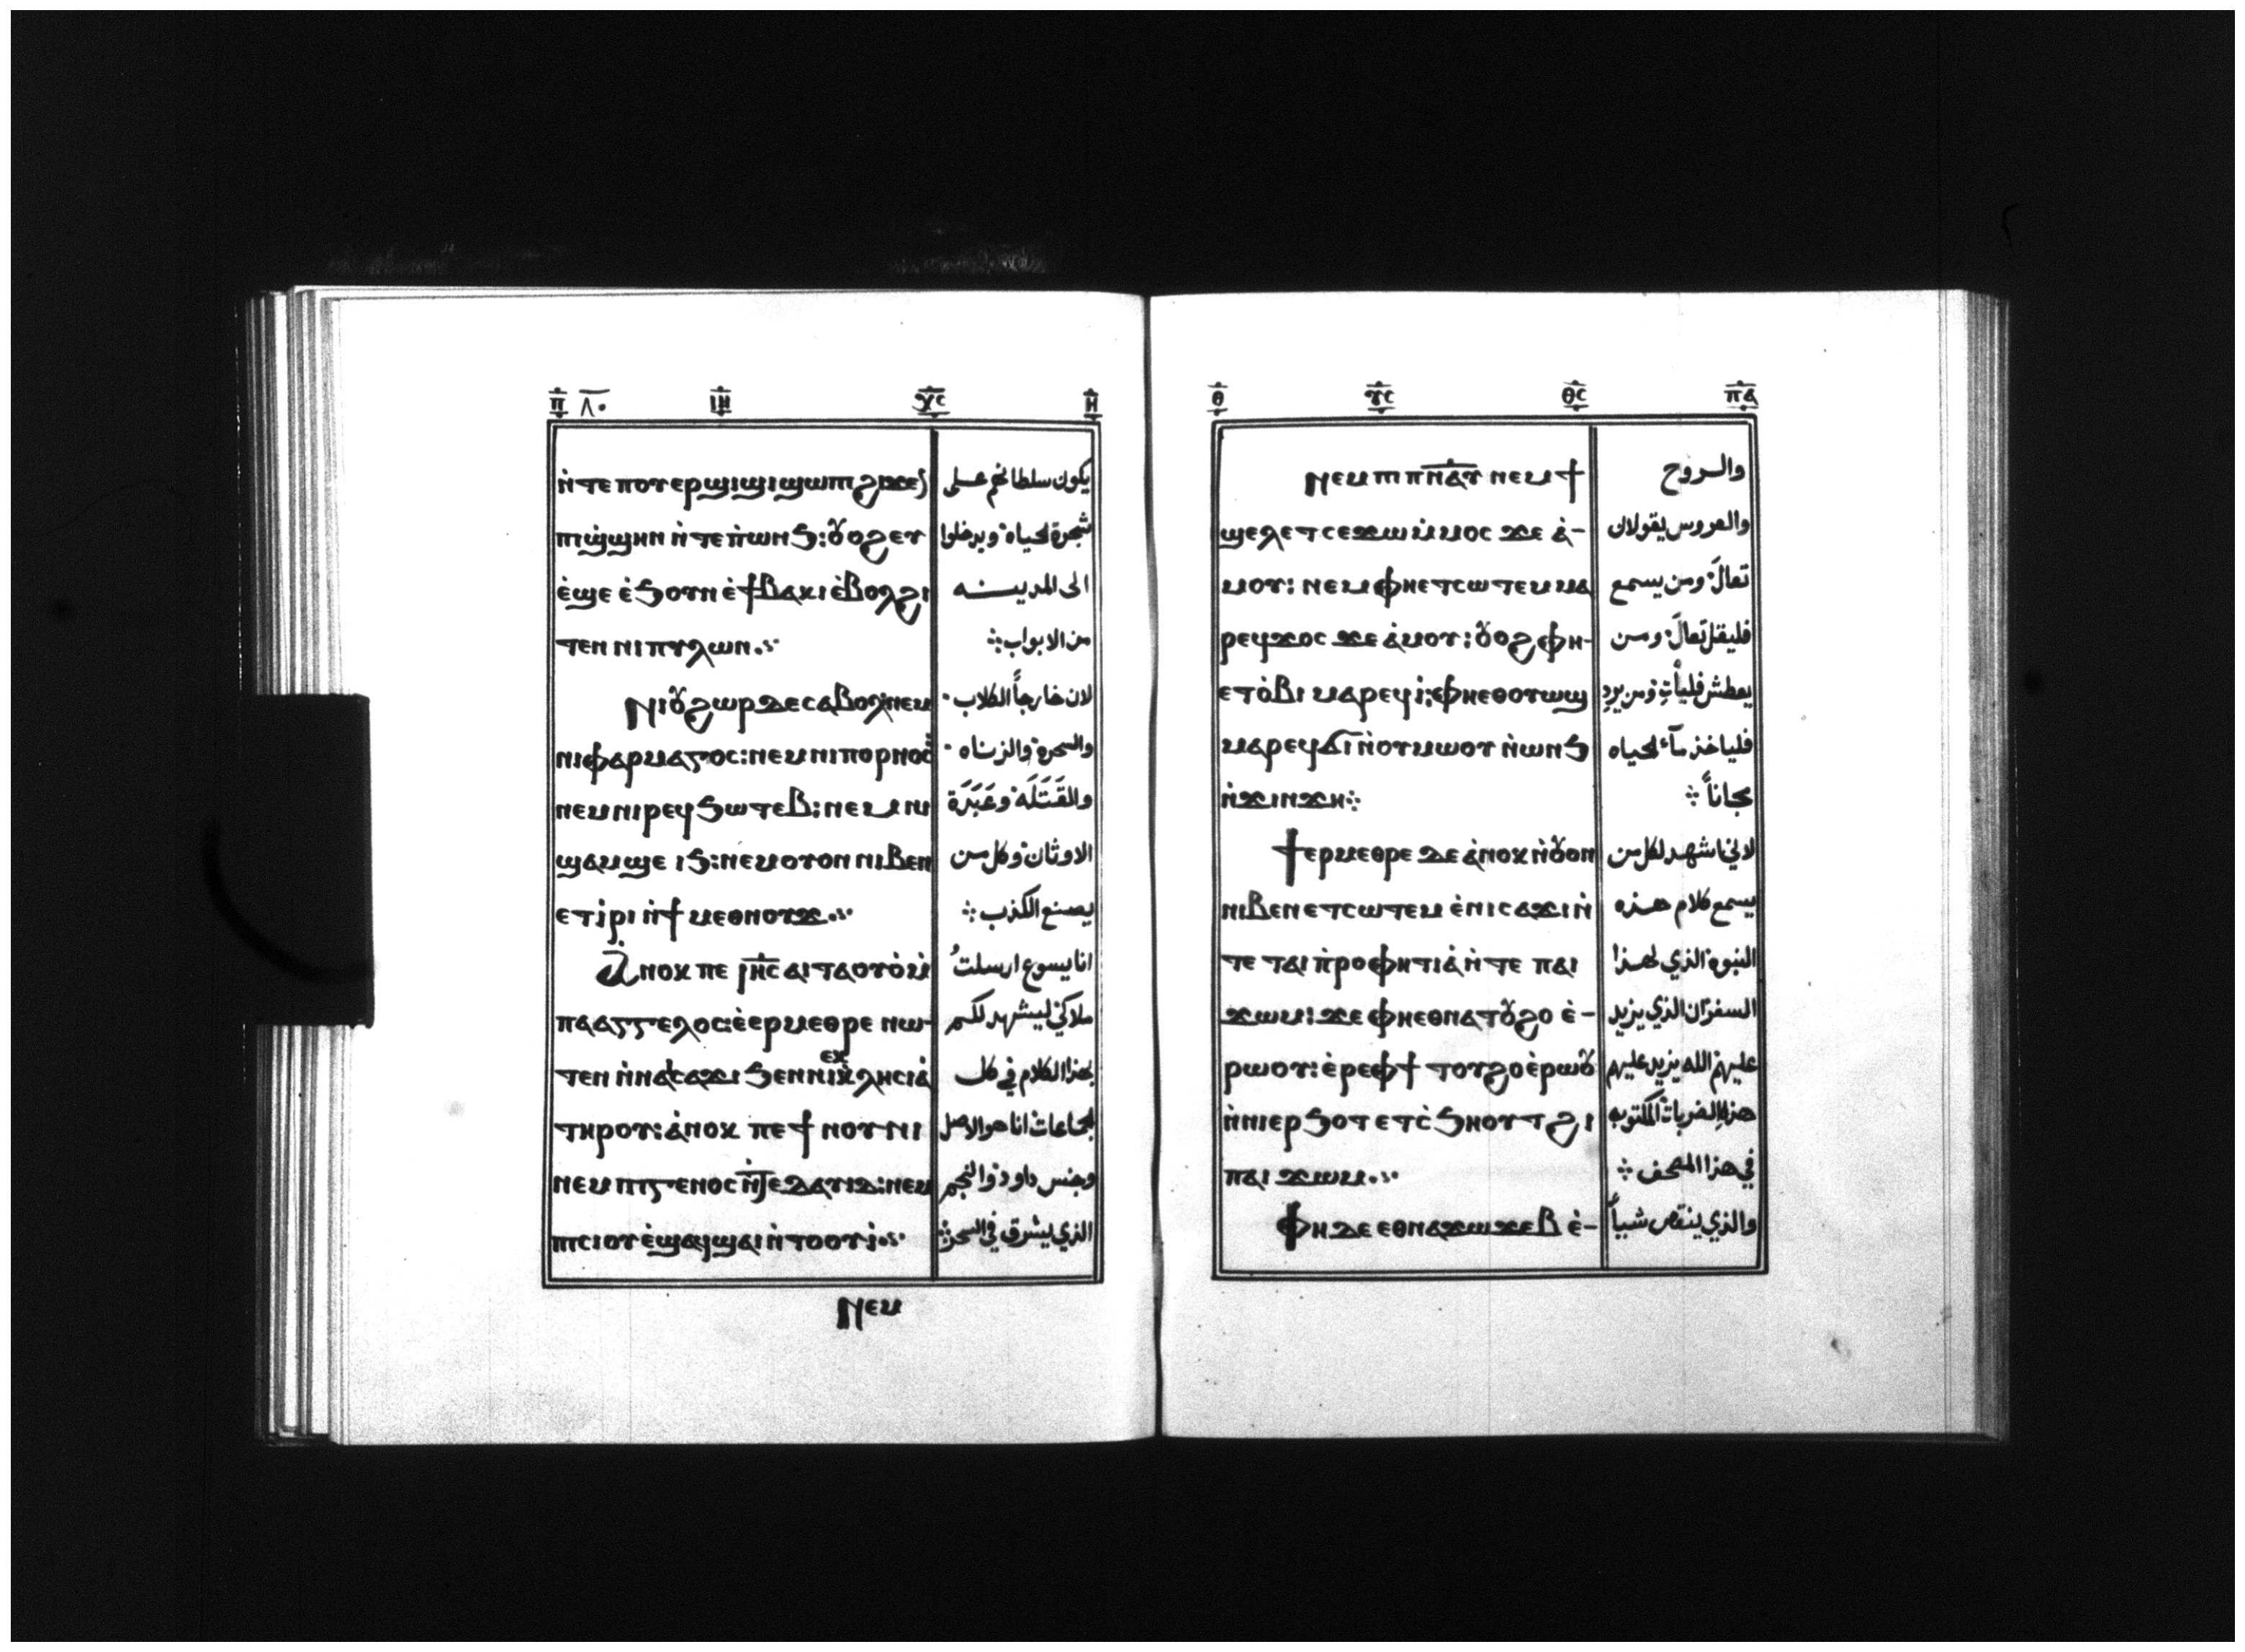 ⲡ ٨٠ ⲓⲏ ⲭⲥ ⲏ
ⲛ̀ⲧⲉ ⲡⲟⲩⲉⲣϣⲓϣⲓ ϣⲱⲡⲓ ϩⲓϫⲉⲛ
ⲡⲓϣ̀ϣⲏⲛ ⲛ̀ⲧⲉ ⲡ̀ⲱⲛϧ: ⲟⲩⲟϩ ⲉⲩ
ⲉ̀ϣⲉ ⲉ̀ϧⲟⲩⲛ ⲉ̀ϯⲃⲁⲕⲓ ⲉ̀ⲃⲟⲗϩⲓ
ⲧⲉⲛ ⲛⲓⲡⲩⲗⲱⲛ
ⲛⲓⲟⲩϩⲱⲣ ⲇⲉ ⲥⲁⲃⲟⲗ: ⲛⲉⲙ
ⲛⲓⲫⲁⲣⲙⲁⲅⲟⲥ: ⲛⲉⲙ ⲛⲓⲡⲟⲣⲛⲟⲥ
ⲛⲉⲙ ⲛⲓⲣⲉϥϧⲱⲧⲉⲃ: ⲛⲉⲙ ⲛⲓ
ϣⲁⲙϣⲉ ⲓϧ: ⲛⲉⲙ ⲟⲩⲟⲛ ⲛⲓⲃⲉⲛ
ⲉⲧⲓ̀ⲣⲓ ⲛ̀ϯⲙⲉⲑⲛⲟⲩϫ
ⲁ̀ⲛⲟⲕ ⲡⲉ ⲓⲏⲥ ⲁⲓⲧⲁⲟⲩⲟ̀ ⲙ̀
ⲡⲁⲁⲅⲅⲉⲗⲟⲥ: ⲉ̀ⲉⲣⲙⲉⲑⲣⲉ ⲛⲱ-
ⲧⲉⲛ ⲛ̀ⲛⲁⲓⲥⲁϫⲓ ϧⲉⲛ ⲛⲓⲉⲕⲕⲗⲏⲥⲓⲁ̀
ⲧⲏⲣⲟⲩ: ⲁ̀ⲛⲟⲕ ⲡⲉ ϯⲛⲟⲩⲛⲓ
ⲛⲉⲙ ⲡⲓⲅⲉⲛⲟⲥ ⲛ̀ⲧⲉ ⲇⲁⲩⲓⲇ: ⲛⲉⲙ
ⲡⲓⲥⲓⲟⲩ ⲉ̀ϣⲁϥϣⲁⲓ ⲛ̀ⲧⲟⲟⲩⲓ̀
ⲛⲉⲙ
يكون سلطانهم على
شجرة الحياة ويدخلوا
الى المدينه
من الابواب
لان خارجاً الكلاب
والسحرة والزناه
والقَتَلَة وعَبَدَة
الاوثان وكل من
يصنع الكذب
انا يسوع ارسلتُ
ملاكي ليشهد لكم
بهذا الكلام في كل
الجماعات انا هو الاصل
وجنس داود والنجم
الذي يشرق في السحر
ⲑ ⲩⲥ ⲑⲥ ⲡⲁ
ⲛⲉⲙ ⲡⲓⲡⲛⲁⲩ ⲛⲉⲙ ϯ
ϣⲉⲗⲉⲧ ⲥⲉϫⲱ ⲙ̀ⲙⲟⲥ ϫⲉ ⲁ̀-
ⲙⲟⲩ: ⲛⲉⲙ ⲫⲏⲉⲧⲥⲱⲧⲉⲙ ⲙⲁ
ⲣⲉϥϫⲟⲥ ϫⲉ ⲁ̀ⲙⲟⲩ: ⲟⲩⲟϩ ⲫⲏ-
ⲉⲧⲟ̀ⲃⲓ ⲙⲁⲣⲉϥⲓ̀: ⲫⲏⲉⲑⲟⲩⲱϣ
ⲙⲁⲣⲉϥϭⲓ ⲛ̀ⲟⲩⲙⲱⲟⲩ ⲛ̀ⲱⲛϧ
ⲛ̀ϫⲓⲛϫⲏ
ϯⲉⲣⲙⲉⲑⲣⲉ ⲇⲉ ⲁ̀ⲛⲟⲕ ⲛ̀ⲟⲩⲟⲛ
ⲛⲓⲃⲉⲛ ⲉⲧⲥⲱⲧⲉⲙ ⲉ̀ⲛⲓⲥⲁϫⲓ ⲛ̀
ⲧⲉ ⲧⲁⲓⲡ̀ⲣⲟⲫⲏⲧⲓⲁ̀ ⲛ̀ⲧⲉ ⲡⲁⲓ
ϫⲱⲙ: ϫⲉ ⲫⲏⲉⲑⲛⲁⲧⲟⲩϩⲟ ⲉ̀-
ⲣⲱⲟⲩ: ⲉ̀ⲣⲉ ⲫϯ ⲧⲟⲩϩⲟ ⲉ̀ⲣⲱⲟⲩ
ⲛ̀ⲛⲓⲉⲣϧⲟⲧ ⲉⲧⲥ̀ϧⲏⲟⲩⲧ ϩⲓ
ⲡⲁⲓϫⲱⲙ
ⲫⲏ ⲇⲉ ⲉⲑⲛⲁϫⲱϫⲉⲃ ⲉ̀-
والروح
والعروس يقولان
تعالَ ومن يسمع
فليقل تعالَ ومن
يعطش فليأتِ ومن يرد
فلياخذ مآء الحياه
مجاناً
لاني اشهد لكل من
يسمع كلام هذه
النبوة الذي لهذا
السفر ان الذي يزيد
عليهم الله يزيد عليهم
هذه الضربات المكتوبه
في هذا المصحف
والذي ينقص شيياً